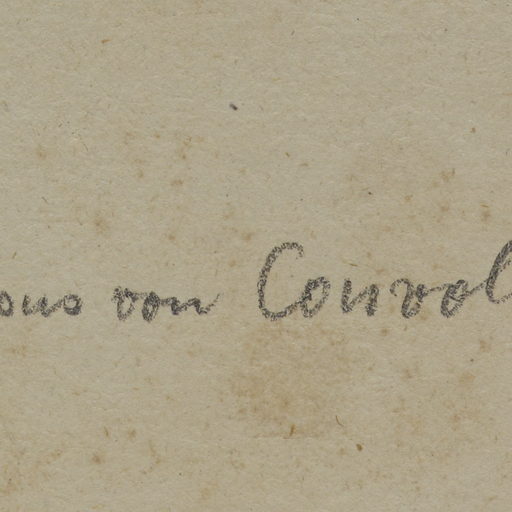 ous von Convol